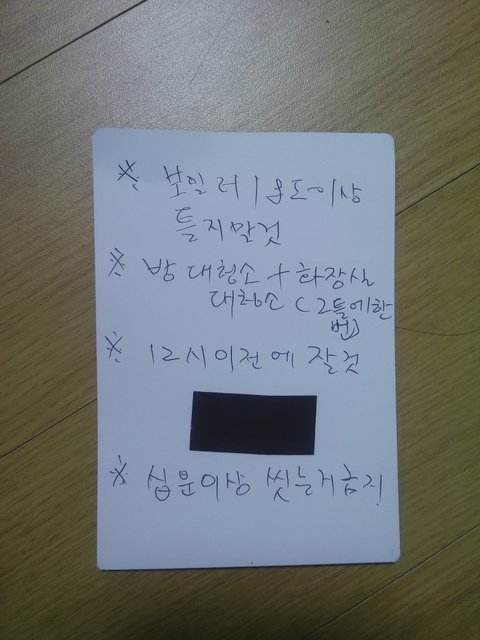 ※ 보일러 18도이상
틀지말것
※ 방 대청소 + 화장실
대청소 (2틀에한
번)
※ 12시이전에 잘것
※ 십분이상 씻는거금지!